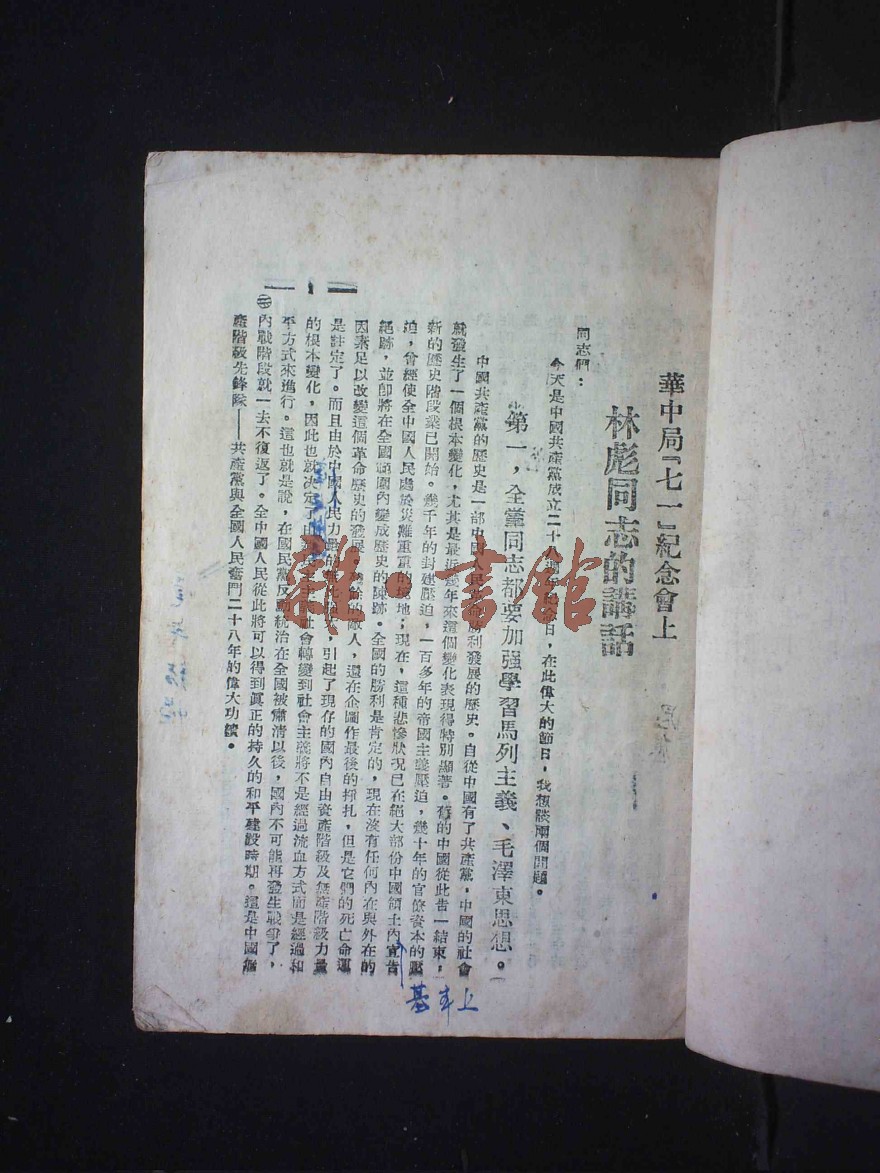 華中局「七一」紀念會上
林彪同志的講話
同志們：
今天是中國共產黨成立二十八週年紀念日，在此偉大的節日，我想談兩個問題。
第一，全黨同志都要加强學習馬列主義、毛澤東思想。
中國共產黨的歷史是一部中國人民勝利發展的歷史。自從中國有了共產黨，中國的社會
就發生了一個根本變化，尤其是最近幾年來這個變化表現得特別顯著。舊的中國從此告一結束，
新的歷史階段業已開始。幾千年的封建壓迫，一百多年的帝國主義壓迫，幾十年的官僚資本的壓
迫，曾經使全中國人民處於災難重重的境地；現在，這種悲慘狀況已在絕大部份中國領土內宣告
絕跡，並即將在全國範圍內變成歷史的陳跡。全國的勝利是肯定的，現在沒有任何內在與外在的
因素足以改變這個革命歷史的發展，殘餘的敵人，還在企圖作最後的掙扎，但是它們的死亡命運
是註定了。而且由於中國人民力量的，引起了現存的國內自由資產階級及無產階級力量
的根本變化，因此也就決定了由主社會轉變到社會主義將不是經過流血方式而是經過和
平方式來進行。這也就是說，在國民黨反動統治在全國被肅清以後，國內不可能再發生戰爭了，
內戰階段就一去不復返了。全中國人民從此將可以得到眞正的持久的和平建設時期。這是中國無
產階級先鋒隊——共產黨與全國人民奮鬥二十八年的偉大功績。
一
基本上
雜·書館